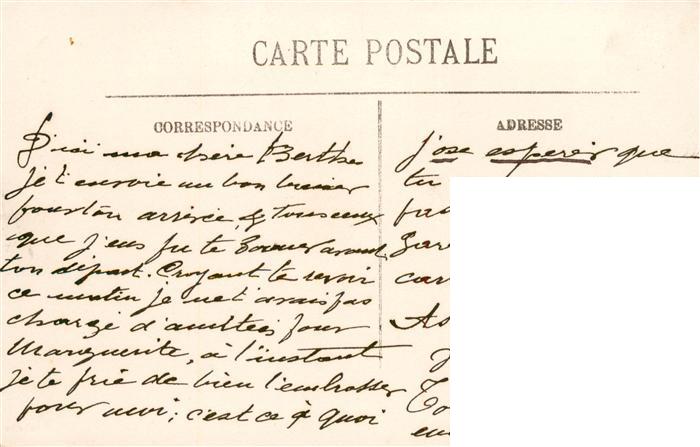 CARTE POSTALE
CORRESPONDANCE
D'ici ma chère Berthe
je t'envoie un bon baiser
pour ton arrivée, & tous ceux
que j'eus pu te donner avant
ton départ. Croyant te revoir
ce matin je ne t'avais pas
chargé d'amitiés pour
Marguerite, à l'instant
je te prie de bien l'embrasser
pour moi; c'est ce à quoi
ADRESSE
j'ose espérer que
tu
car